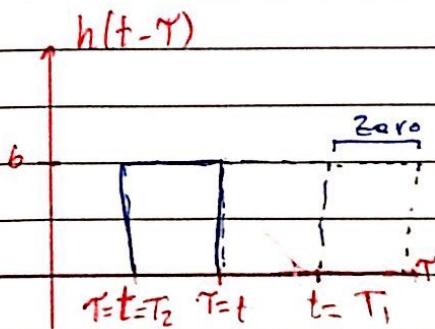 h(t-τ)
zero
6
τ
τ=t=T₂ τ=t t= T₁